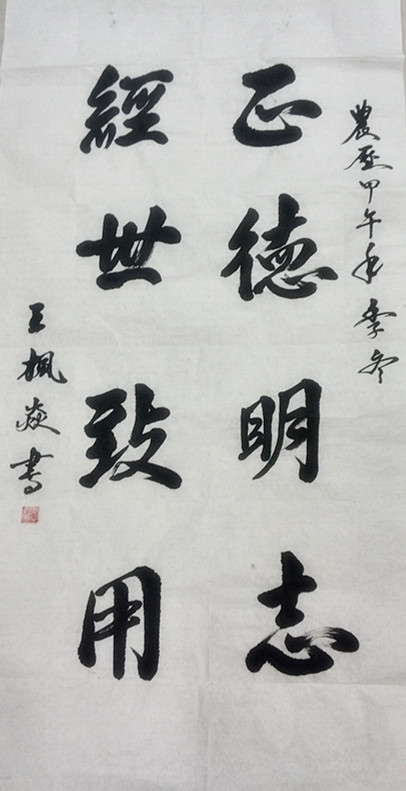 農歷甲午年季冬
正德明志
經世致用
王楓焱書